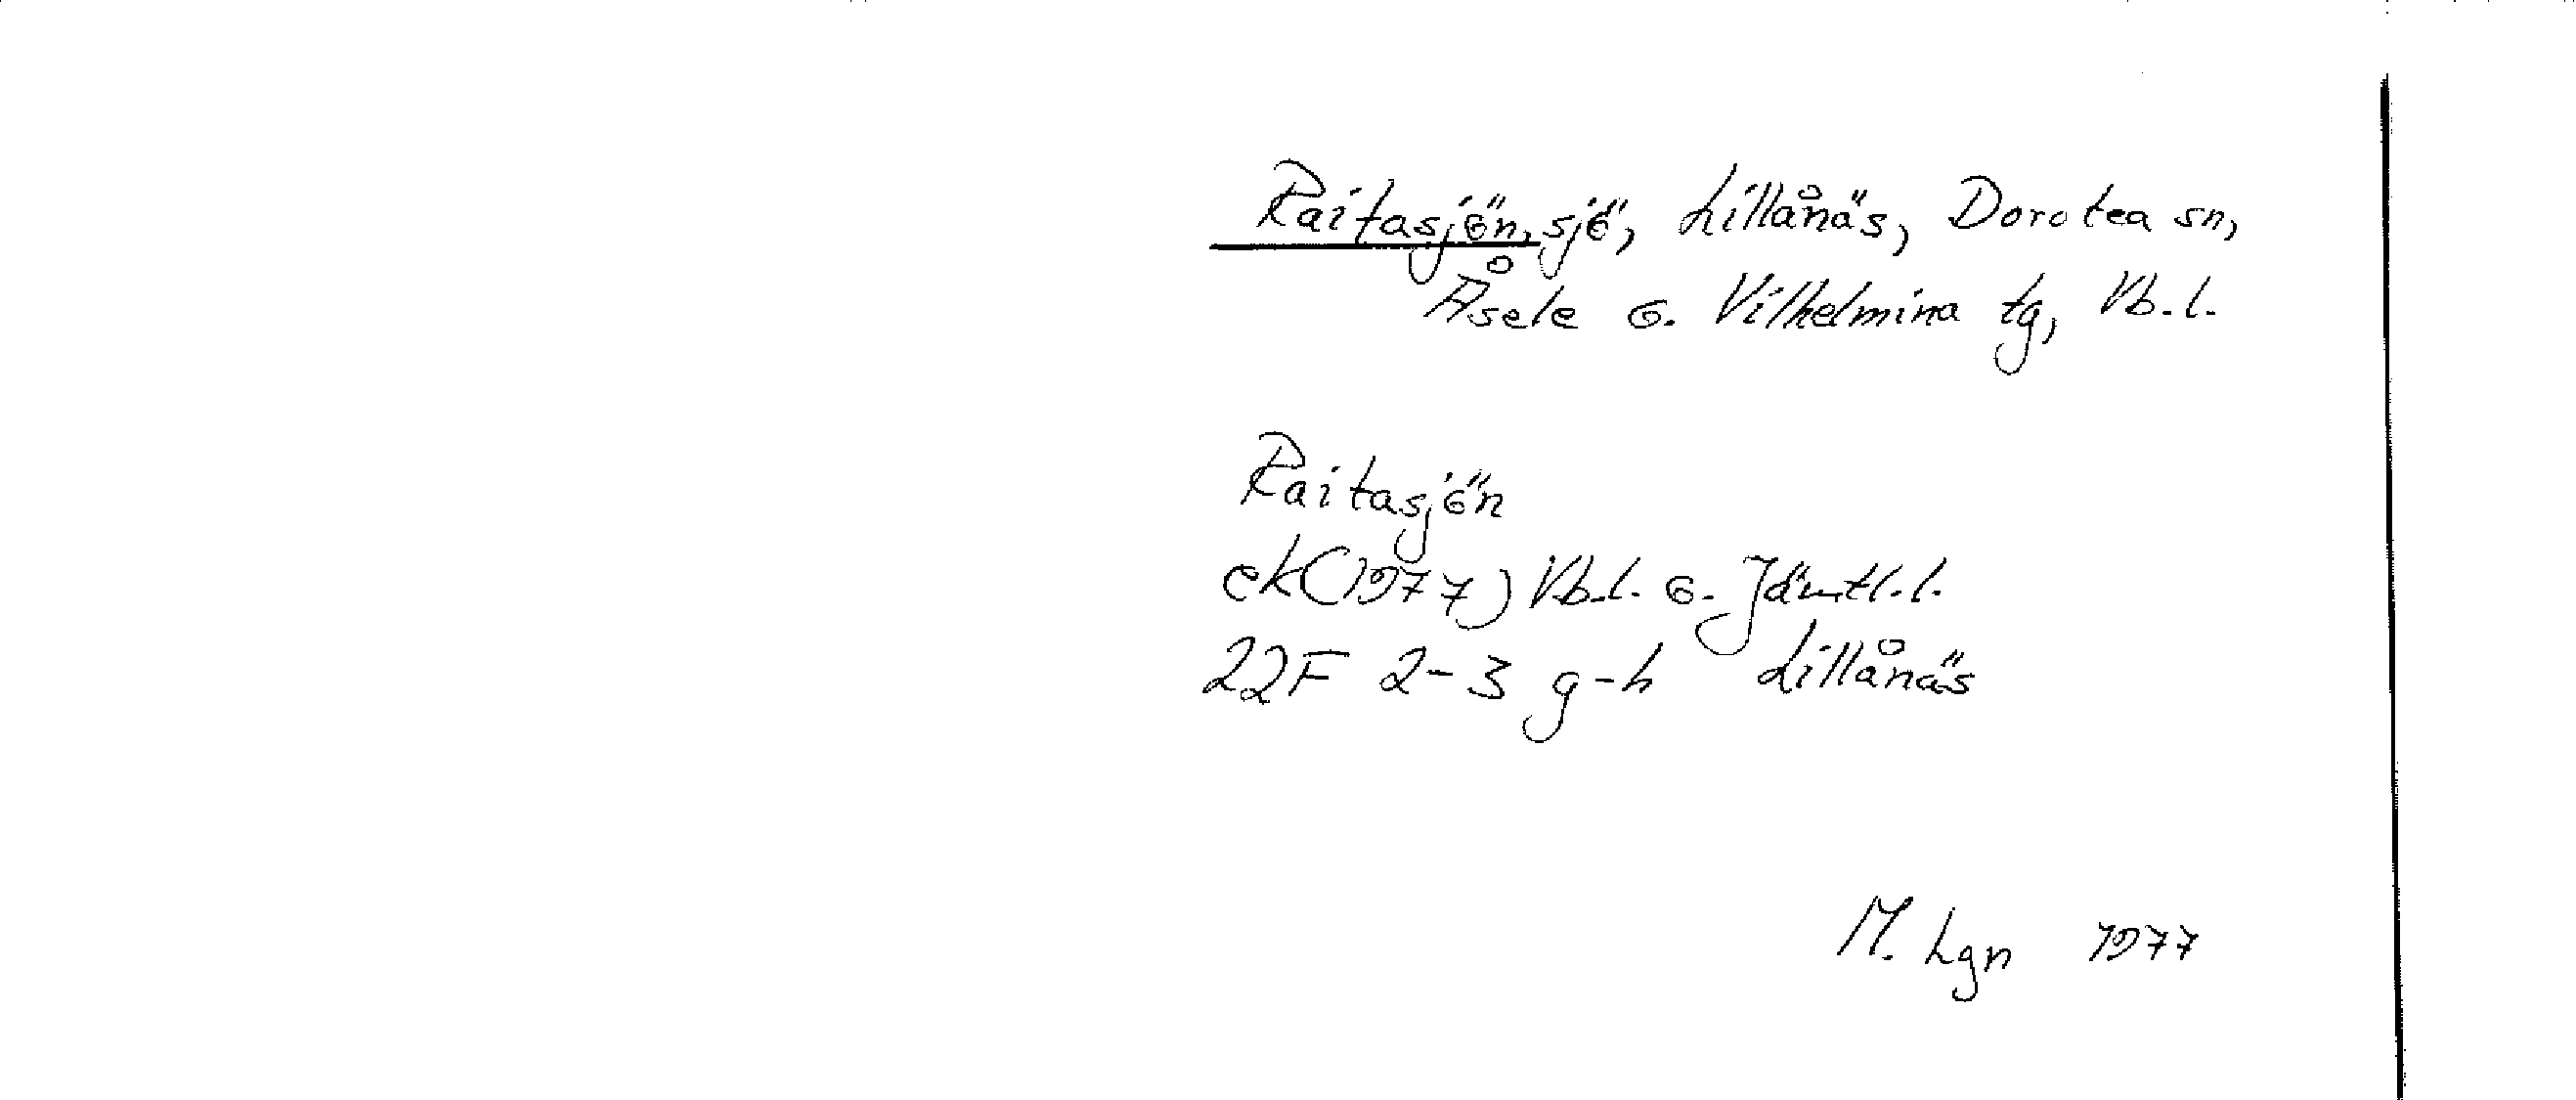 Raitasjön, sjö, Lillånäs, Dorotea sn,
Åsele o. Vilhelmina tg, Vb.l.
Raitasjön
ek(1977) Vb.l. o. Jämtl.l.
22F 2-3 g-h Lillånäs
M. Lgn 1977